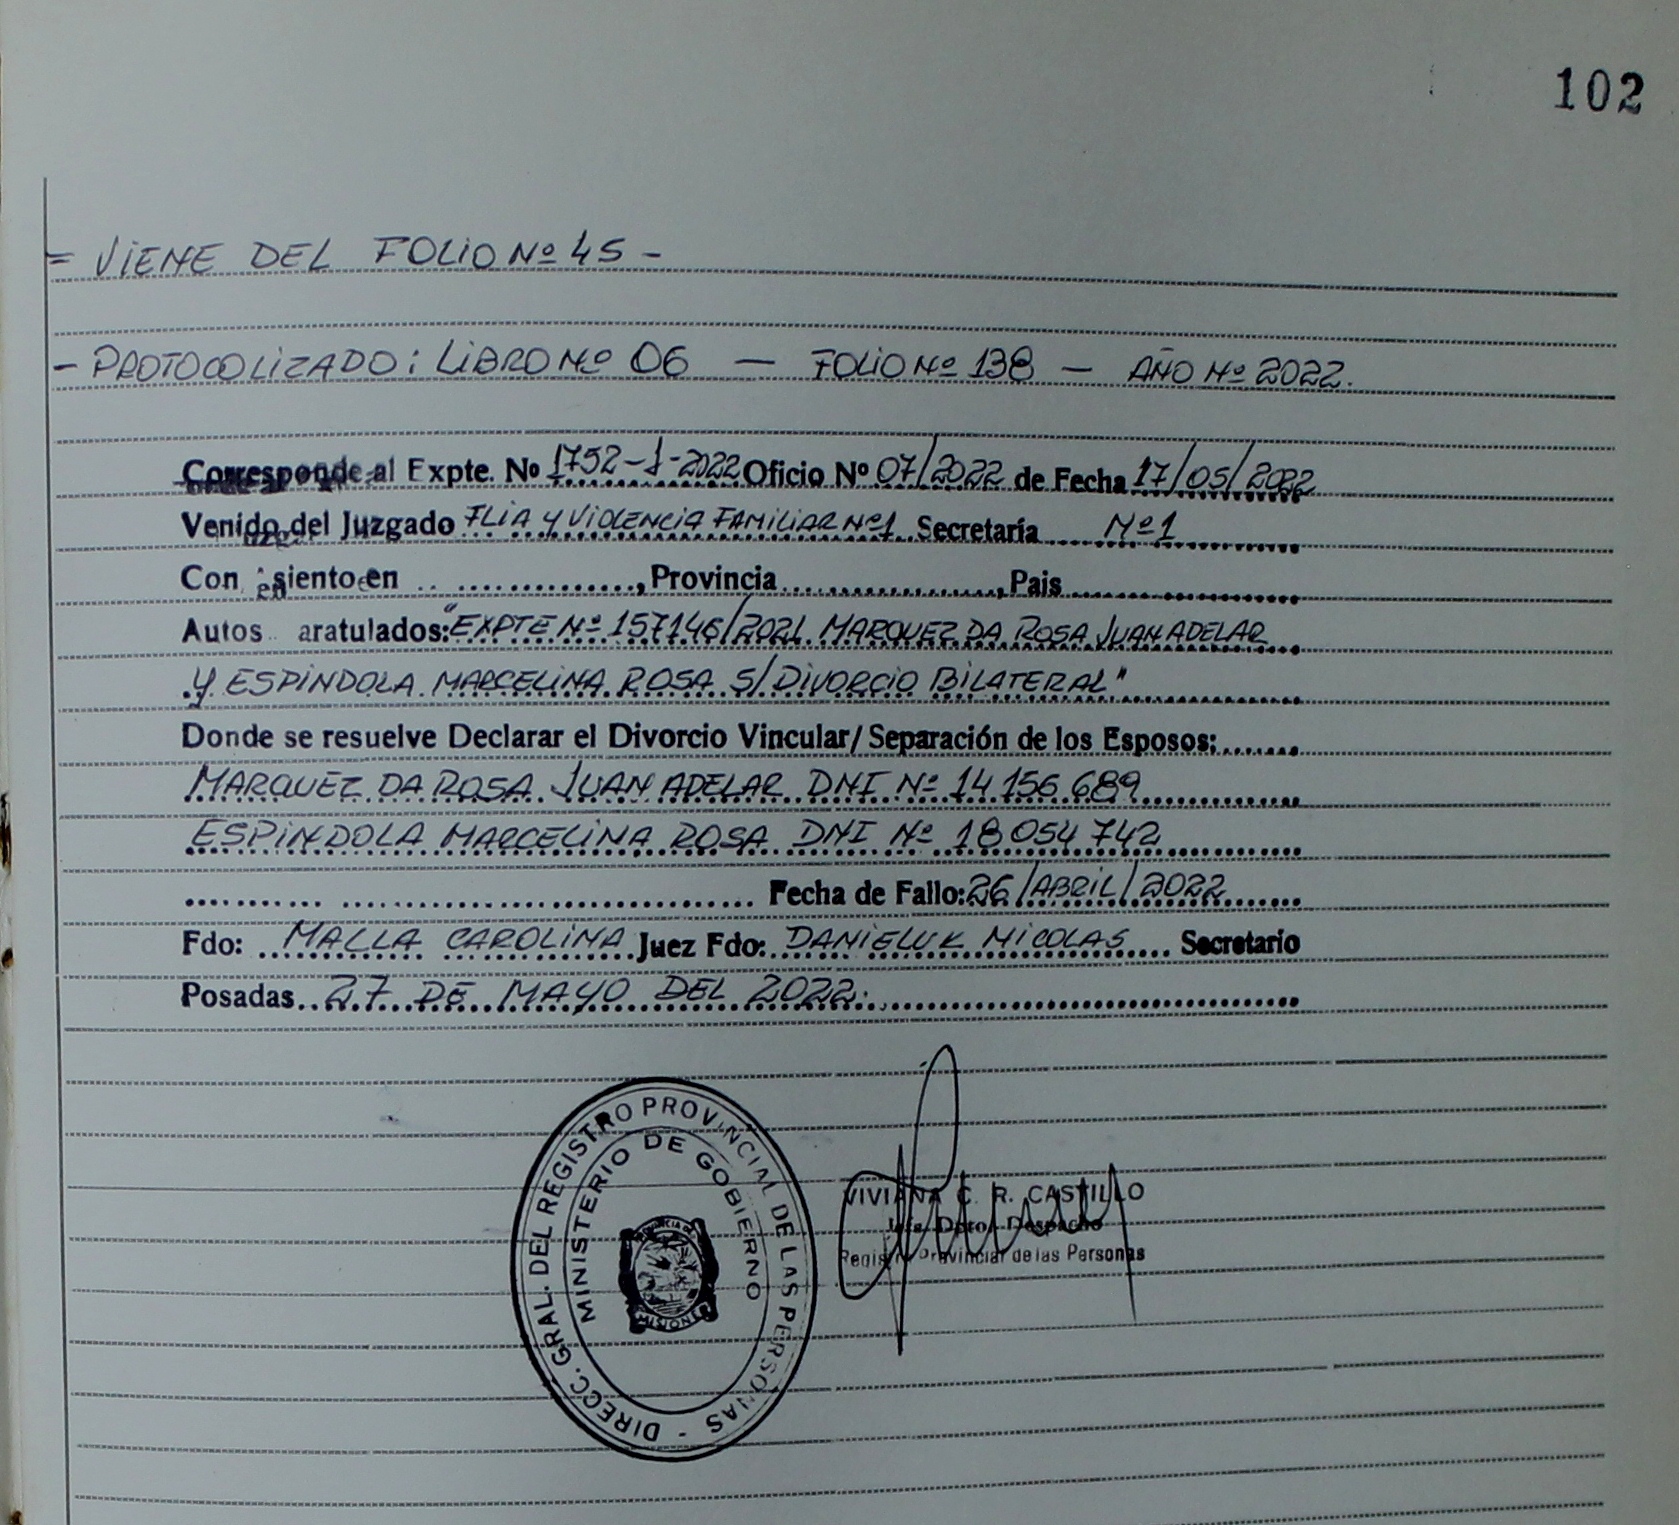 102
= VIENE DEL FOLIO Nº 45 -
- PROTOCOLIZADO: LIBRO Nº 06 — FOLIO Nº 138 — AÑO Nº 2022.
Corresponde al Expte. Nº 1752-1-2022 Oficio Nº 07/2022 de Fecha 17/05/2022
Venido del Juzgado FLIA Y VIOLENCIA FAMILIAR Nº1 Secretaría Nº1
Con asiento en ............, Provincia ............, Pais ............
Autos caratulados: "EXPTE Nº 157146/2021 MARQUEZ DA ROSA JUAN ADELAR
Y ESPINDOLA MARCELINA ROSA S/ DIVORCIO BILATERAL"
Donde se resuelve Declarar el Divorcio Vincular/Separación de los Esposos:
MARQUEZ DA ROSA JUAN ADELAR DNI Nº 14 156 689
ESPINDOLA MARCELINA ROSA DNI Nº 18 054 742
Fecha de Fallo: 26/ABRIL/2022
Fdo: MALLA CAROLINA Juez Fdo: DANIELUK NICOLAS Secretario
Posadas 27 DE MAYO DEL 2022.
DIRECC. GRAL. DEL REGISTRO PROVINCIAL DE LAS PERSONAS -
MINISTERIO DE GOBIERNO
PROVINCIA DE
MISIONES
VIVIANA C. R. CASTILLO
Jefa Dpto. Despacho
Registro Provincial de las Personas